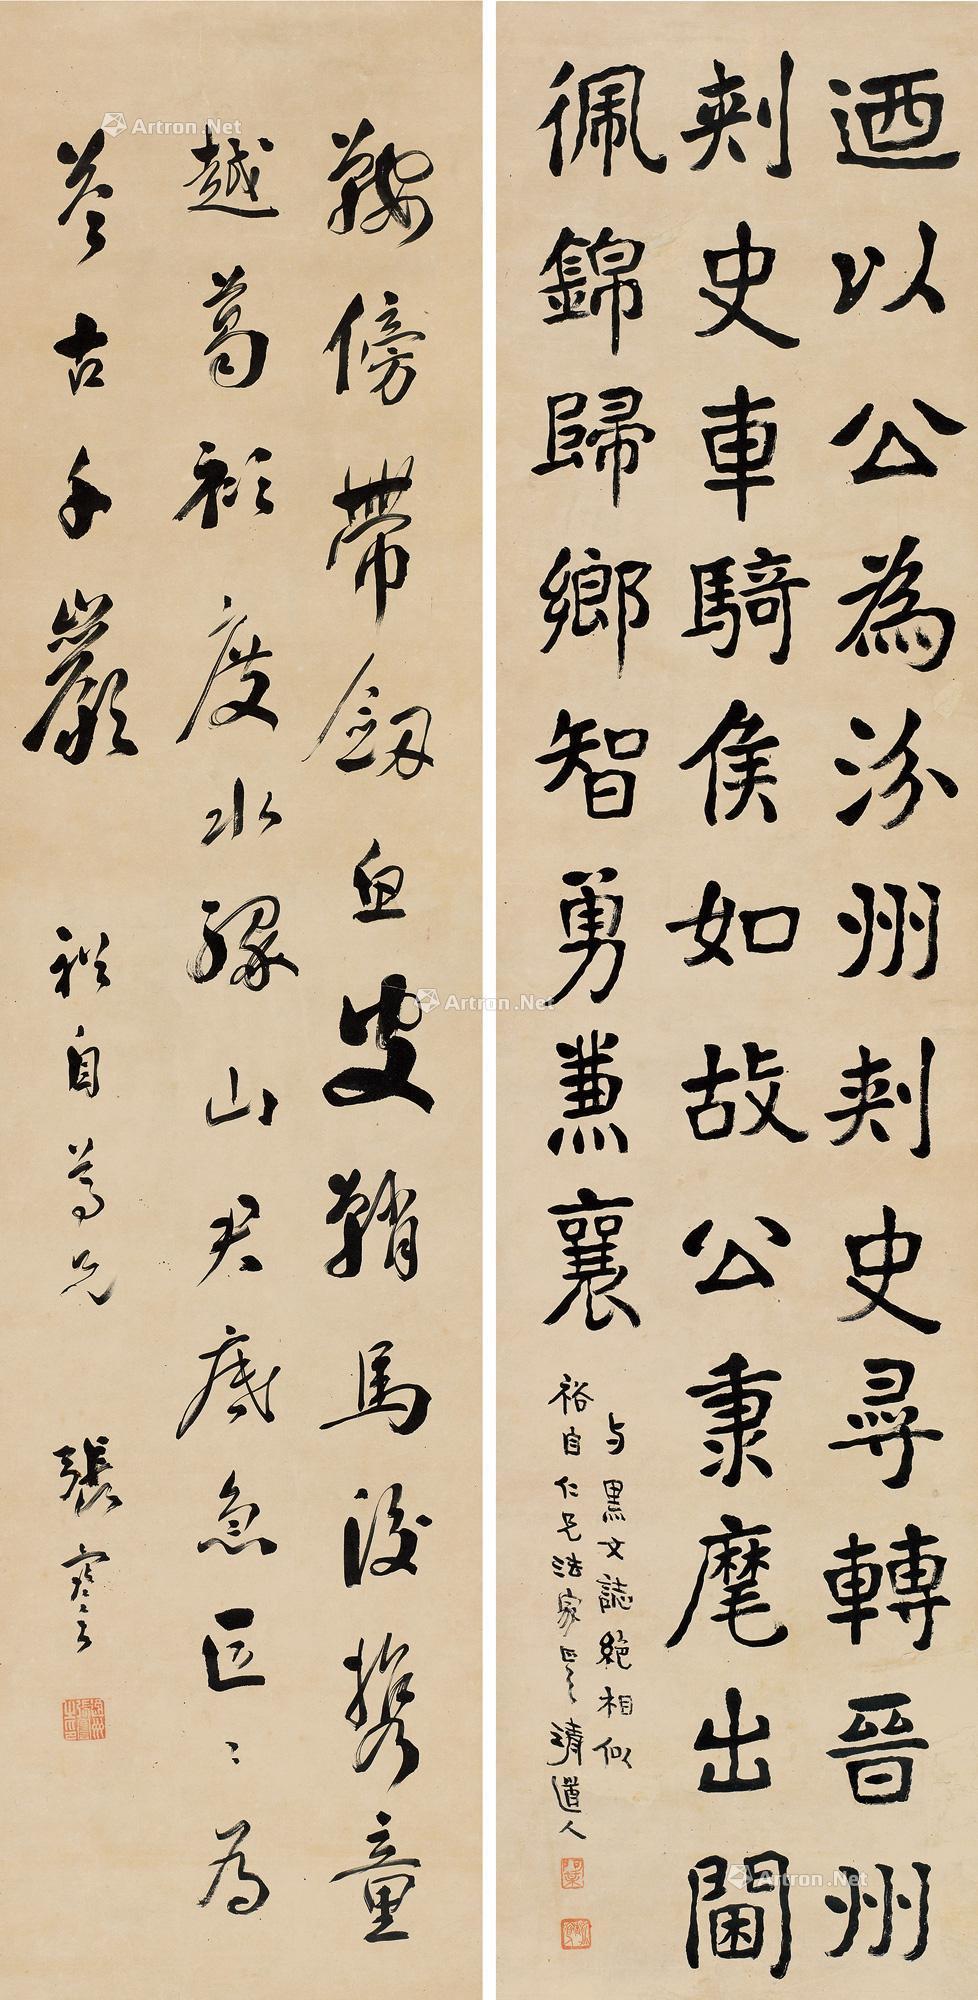 迺以公為汾州刾史尋轉晉州
刾史車騎侯如故公秉麾出閫
佩錦歸鄉智勇兼襄
与黑文誌絕相似
裕自仁兄法家正之 清道人
鞍傍帶劔魚皮鞘馬後攜童
越葛衫度水緣山君底急區〻為
答古千巖
裕自尊兄 張謇
Artron.Net
Artron.Net
Artron.Net